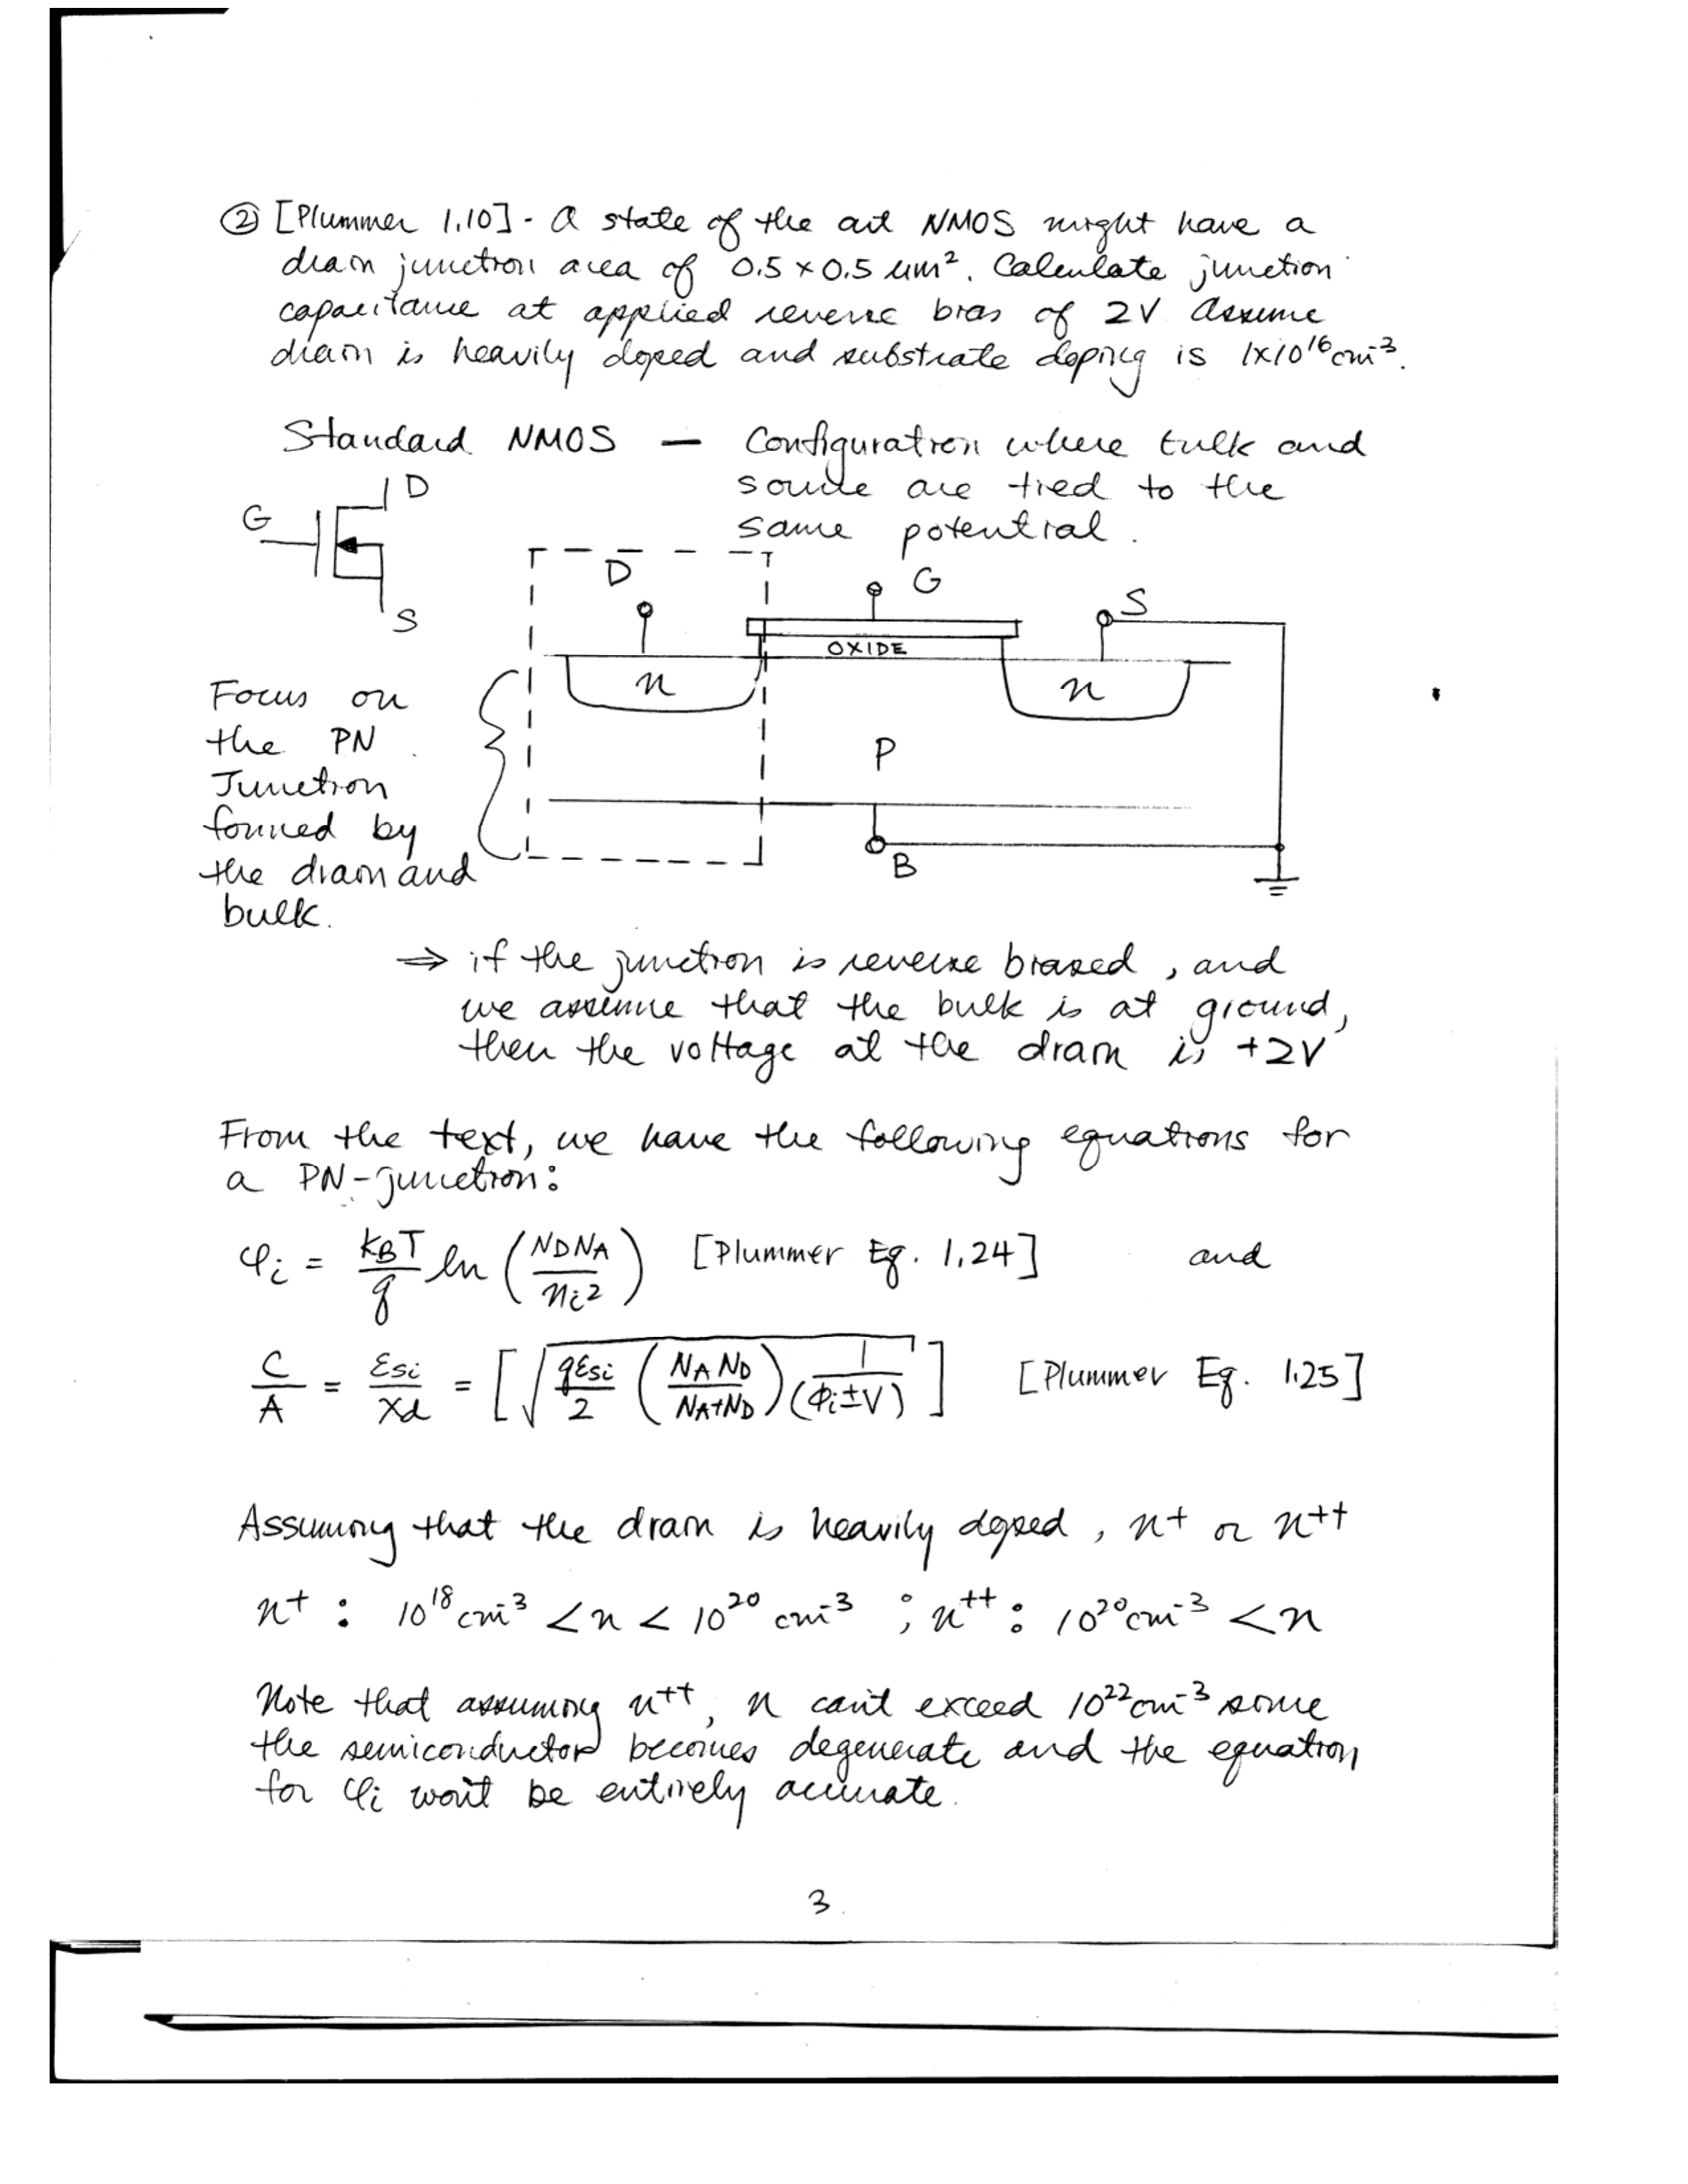 ② [Plummer 1.10] - A state of the art NMOS might have a
drain junction area of 0.5 × 0.5 um². Calculate junction
capacitance at applied reverse bias of 2V Assume
drain is heavily doped and substrate doping is 1×10¹⁶cm⁻³.
Standard NMOS — Configuration where bulk and
source are tied to the
same potential.
D
G
S
D
G
S
OXIDE
n
n
P
B
Focus on
the PN
Junction
formed by
the drain and
bulk.
⇒ if the junction is reverse biased, and
we assume that the bulk is at ground,
then the voltage at the drain is +2V
From the text, we have the following equations for
a PN-junction:
φi = kBT/q ln (NDNA/ni²) [Plummer Eq. 1.24] and
C/A = εsi/xd = [√(qεsi/2 (NA ND/NA+ND) 1/(ϕi±V))] [Plummer Eq. 1.25]
Assuming that the drain is heavily doped, n+ or n++
n+ : 10¹⁸cm⁻³ < n < 10²⁰ cm⁻³ ; n++ : 10²⁰cm⁻³ < n
Note that assuming n++, n can't exceed 10²²cm⁻³ since
the semiconductor becomes degenerate and the equation
for φi won't be entirely accurate.
3